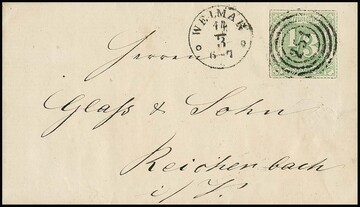 WEIMAR
14
3
6-7
1/3
Herren
Glass & Sohn
Reichenbach
i/V.